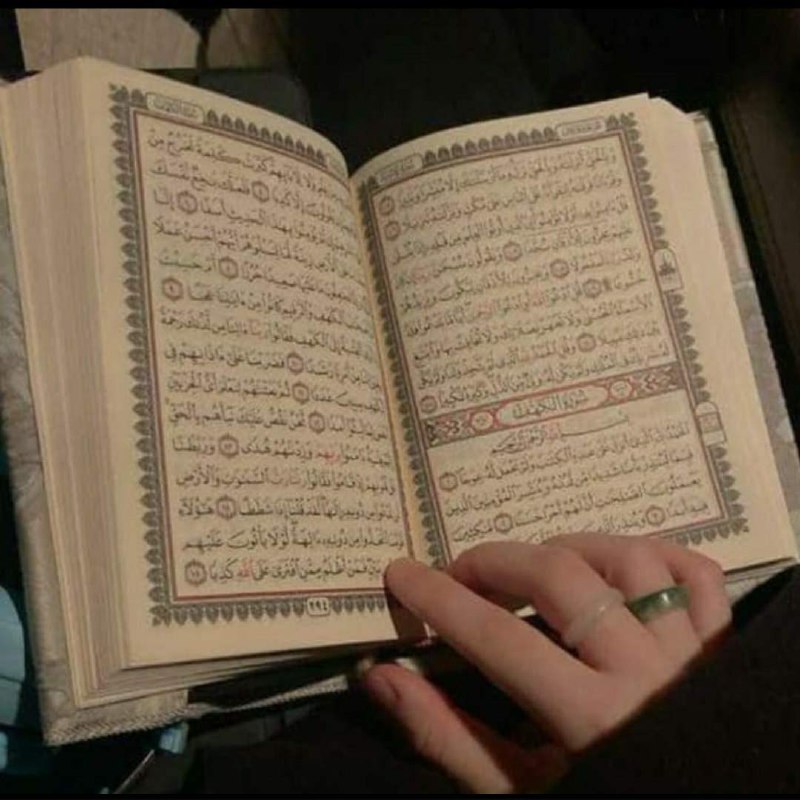 وَبِٱلْحَقِّ أَنزَلْنَٰهُ وَبِٱلْحَقِّ نَزَلَ وَمَآ أَرْسَلْنَٰكَ إِلَّا مُبَشِّرًا وَنَذِيرًا ١٠٥
وَقُرْءَانًا فَرَقْنَٰهُ لِتَقْرَأَهُۥ عَلَى ٱلنَّاسِ عَلَىٰ مُكْثٍ وَنَزَّلْنَٰهُ تَنزِيلًا ١٠٦
قُلْ ءَامِنُوا۟ بِهِۦٓ أَوْ لَا تُؤْمِنُوٓا۟ إِنَّ ٱلَّذِينَ أُوتُوا۟ ٱلْعِلْمَ مِن قَبْلِهِۦٓ إِذَا يُتْلَىٰ
عَلَيْهِمْ يَخِرُّونَ لِلْأَذْقَانِ سُجَّدًا ١٠٧ وَيَقُولُونَ سُبْحَٰنَ رَبِّنَآ إِن
كَانَ وَعْدُ رَبِّنَا لَمَفْعُولًا ١٠٨ وَيَخِرُّونَ لِلْأَذْقَانِ يَبْكُونَ وَيَزِيدُهُمْ
خُشُوعًا ١٠٩ قُلِ ٱدْعُوا۟ ٱللَّهَ أَوِ ٱدْعُوا۟ ٱلرَّحْمَٰنَ أَيًّا مَّا تَدْعُوا۟ فَلَهُ
ٱلْأَسْمَآءُ ٱلْحُسْنَىٰ وَلَا تَجْهَرْ بِصَلَاتِكَ وَلَا تُخَافِتْ بِهَا وَٱبْتَغِ
بَيْنَ ذَٰلِكَ سَبِيلًا ١١٠ وَقُلِ ٱلْحَمْدُ لِلَّهِ ٱلَّذِى لَمْ يَتَّخِذْ وَلَدًا وَلَمْ يَكُن
لَّهُۥ شَرِيكٌ فِى ٱلْمُلْكِ وَلَمْ يَكُن لَّهُۥ وَلِىٌّ مِّنَ ٱلذُّلِّ وَكَبِّرْهُ تَكْبِيرًۢا ١١١
سُورَةُ الكَهْفِ
بِسْمِ ٱللَّهِ ٱلرَّحْمَٰنِ ٱلرَّحِيمِ
ٱلْحَمْدُ لِلَّهِ ٱلَّذِىٓ أَنزَلَ عَلَىٰ عَبْدِهِ ٱلْكِتَٰبَ وَلَمْ يَجْعَل لَّهُۥ عِوَجَا ١
قَيِّمًا لِّيُنذِرَ بَأْسًا شَدِيدًا مِّن لَّدُنْهُ وَيُبَشِّرَ ٱلْمُؤْمِنِينَ ٱلَّذِينَ
يَعْمَلُونَ ٱلصَّٰلِحَٰتِ أَنَّ لَهُمْ أَجْرًا حَسَنًا ٢ مَّٰكِثِينَ
فِيهِ أَبَدًا ٣ وَيُنذِرَ ٱلَّذِينَ
سُورَةُ الكَهْفِ
وَلَا لِءَابَآئِهِمْ كَبُرَتْ كَلِمَةً تَخْرُجُ مِنْ
إِن يَقُولُونَ إِلَّا كَذِبًا ٥ فَلَعَلَّكَ بَٰخِعٌ نَّفْسَكَ
لَّمْ يُؤْمِنُوا۟ بِهَٰذَا ٱلْحَدِيثِ أَسَفًا ٦ إِنَّا
عَلَى ٱلْأَرْضِ زِينَةً لَّهَا لِنَبْلُوَهُمْ أَيُّهُمْ أَحْسَنُ عَمَلًا
لَجَٰعِلُونَ مَا عَلَيْهَا صَعِيدًا جُرُزًا ٨ أَمْ حَسِبْتَ
ٱلْكَهْفِ وَٱلرَّقِيمِ كَانُوا۟ مِنْ ءَايَٰتِنَا عَجَبًا ٩
ٱلْفِتْيَةُ إِلَى ٱلْكَهْفِ فَقَالُوا۟ رَبَّنَآ ءَاتِنَا مِن لَّدُنكَ رَحْمَةً
لَنَا مِنْ أَمْرِنَا رَشَدًا ١٠ فَضَرَبْنَا عَلَىٰٓ ءَاذَانِهِمْ فِى
ٱلْكَهْفِ سِنِينَ عَدَدًا ١١ ثُمَّ بَعَثْنَٰهُمْ لِنَعْلَمَ أَىُّ ٱلْحِزْبَيْنِ
أَحْصَىٰ لِمَا لَبِثُوٓا۟ أَمَدًا ١٢ نَّحْنُ نَقُصُّ عَلَيْكَ نَبَأَهُم بِٱلْحَقِّ
فِتْيَةٌ ءَامَنُوا۟ بِرَبِّهِمْ وَزِدْنَٰهُمْ هُدًى ١٣ وَرَبَطْنَا
قُلُوبِهِمْ إِذْ قَامُوا۟ فَقَالُوا۟ رَبُّنَا رَبُّ ٱلسَّمَٰوَٰتِ وَٱلْأَرْضِ
لَن نَّدْعُوَا۟ مِن دُونِهِۦٓ إِلَٰهًا لَّقَدْ قُلْنَآ إِذًا شَطَطًا ١٤ هَٰٓؤُلَآءِ
قَوْمُنَا ٱتَّخَذُوا۟ مِن دُونِهِۦٓ ءَالِهَةً لَّوْلَا يَأْتُونَ عَلَيْهِم
بَيِّنٍ فَمَنْ أَظْلَمُ مِمَّنِ ٱفْتَرَىٰ عَلَى ٱللَّهِ كَذِبًا ١٥
٢٩٤